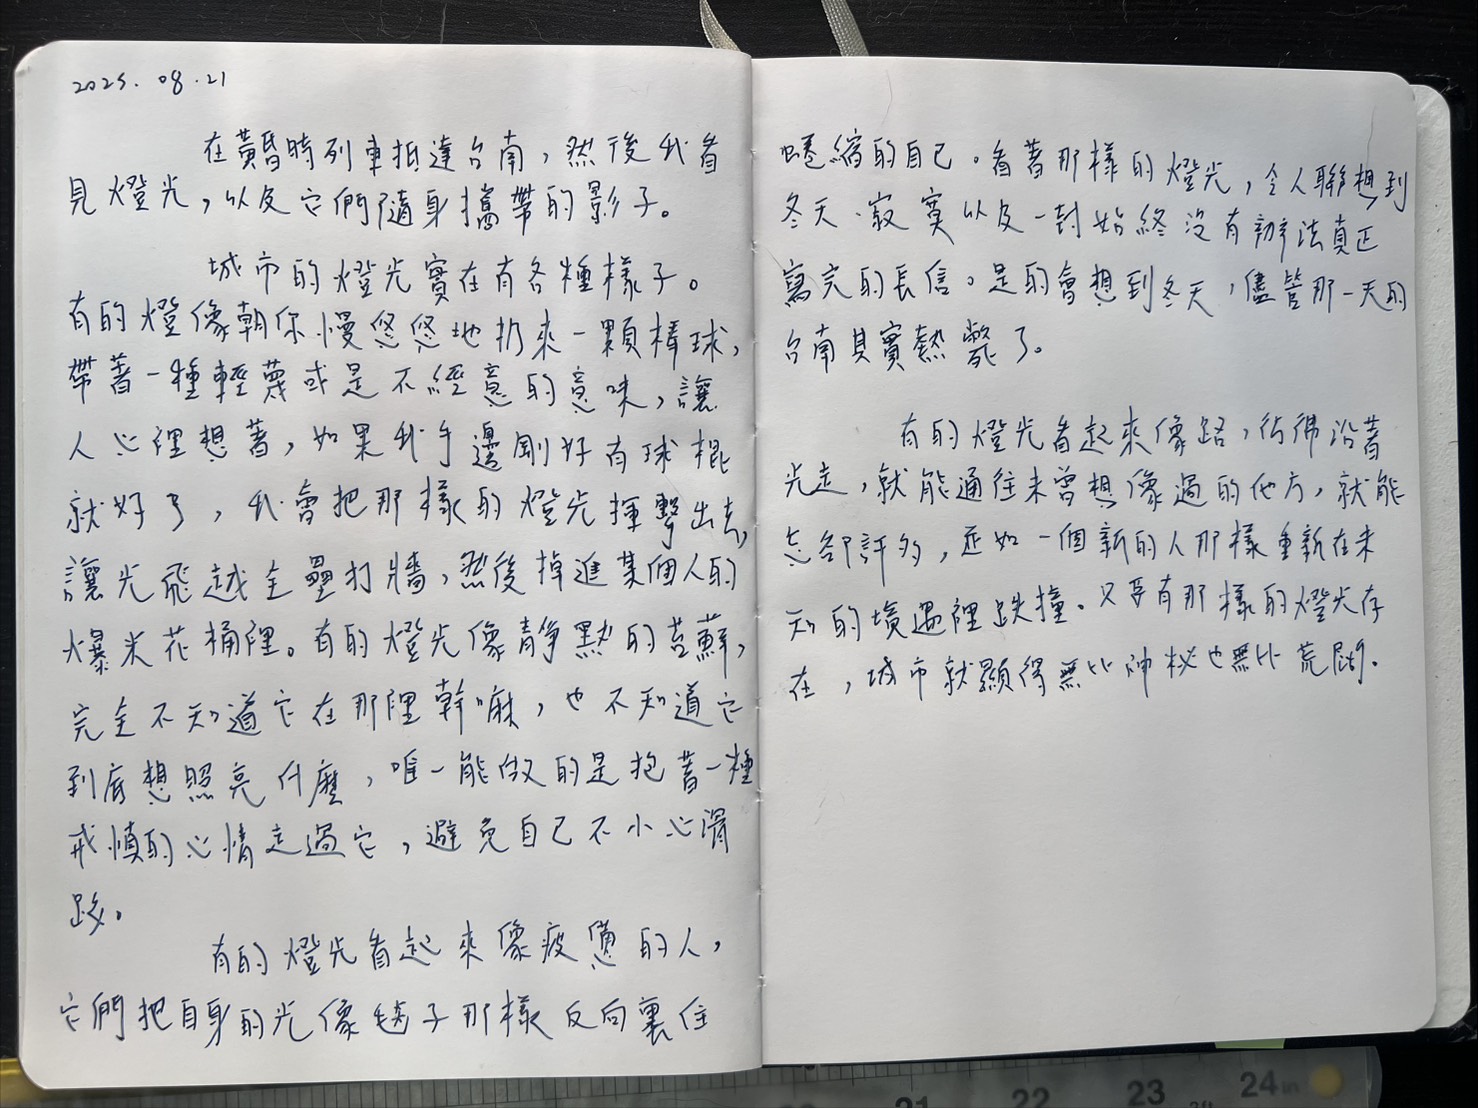 2025.08.21
在黃昏時列車抵達台南，然後我看
見燈光，以及它們隨身攜帶的影子。
城市的燈光實在有各種樣子。
有的燈像朝你慢悠悠地扔來一顆棒球，
帶著一種輕蔑或是不經意的意味，讓
人心裡想著，如果我手邊剛好有球棍
就好了，我會把那樣的燈光揮擊出去，
讓光飛越全壘打牆，然後掉進某個人的
爆米花桶裡。有的燈光像靜默的苔蘚，
完全不知道它在那裡幹嘛，也不知道它
到底想照亮什麼，唯一能做的是抱著一種
戒慎的心情走過它，避免自己不小心滑
跤。
有的燈光看起來像疲憊的人，
它們把自身的光像毯子那樣反向裹住
蜷縮的自己。看著那樣的燈光，令人聯想到
冬天、寂寞以及一封始終沒有辦法真正
寫完的長信。是的會想到冬天，儘管那一天的
台南其實熱斃了。
有的燈光看起來像路，彷彿沿著
光走，就能通往未曾想像過的他方，就能
忘卻許多，逕如一個新的人那樣重新在未
知的境遇裡跌撞。只要有那樣的燈光存
在，城市就顯得無比神秘也無比荒闊。
21
22
23
24 in
2ft